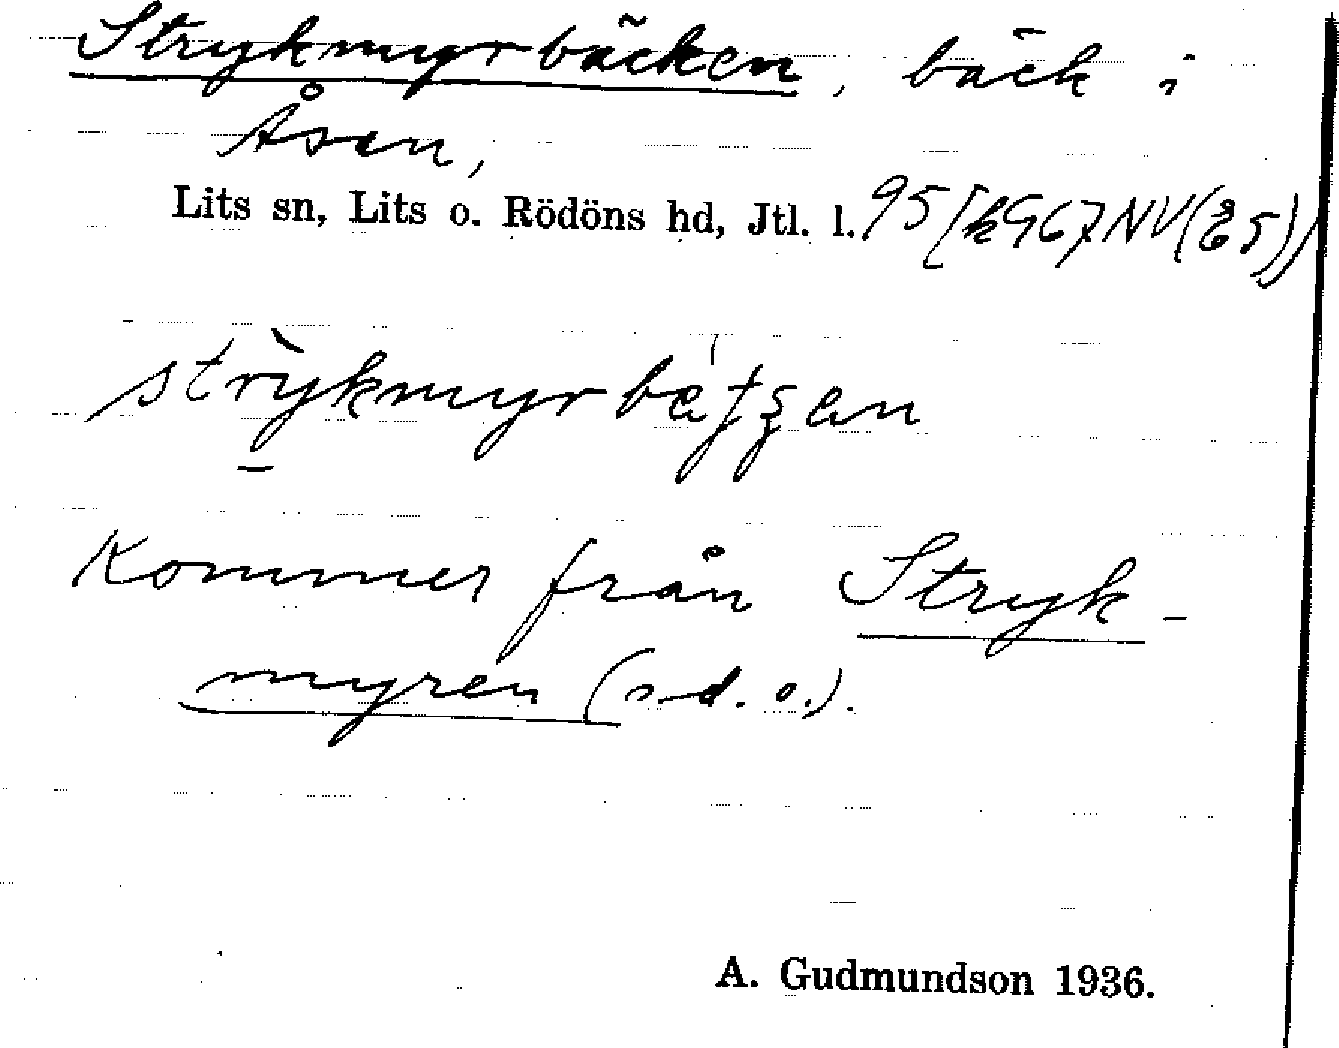 Strykmyrbäcken, bäck i
Åsen,
Lits sn, Lits o. Rödöns hd, Jtl. l. 95 [k967NV(
Kommer från Stryk-
myren (s.d.o.).
A. Gudmundson 1936.